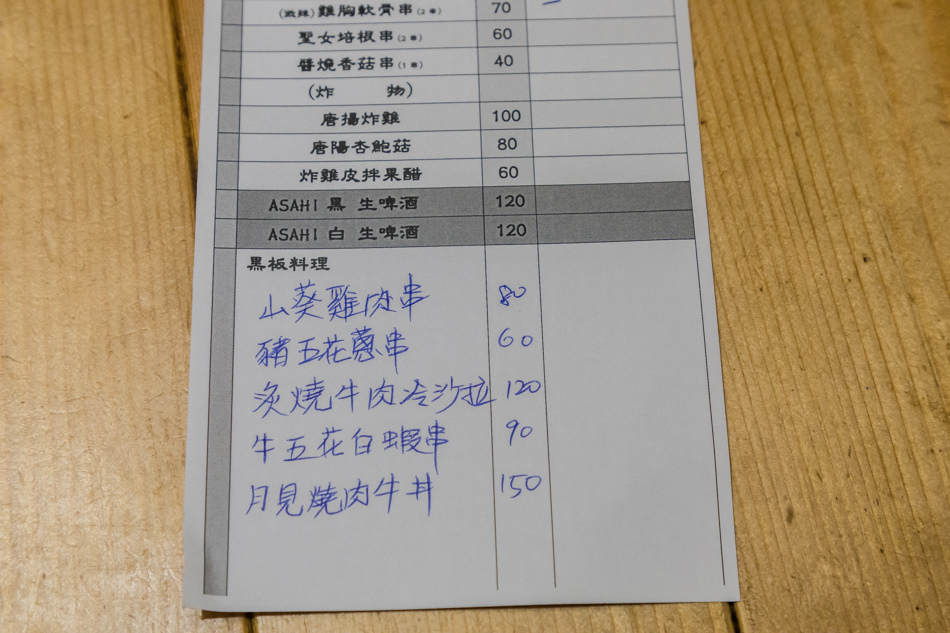 (微辣)雞胸軟骨串(2串) 70
聖女培根串(2串) 60
醬燒香菇串(1串) 40
(炸 物)
唐揚炸雞 100
唐陽杏鮑菇 80
炸雞皮拌果醋 60
ASAHI 黑 生啤酒 120
ASAHI 白 生啤酒 120
黑板料理
山葵雞肉串 80
豬五花蔥串 60
炙燒牛肉冷沙拉 120
牛五花白蝦串 90
月見燒肉牛丼 150